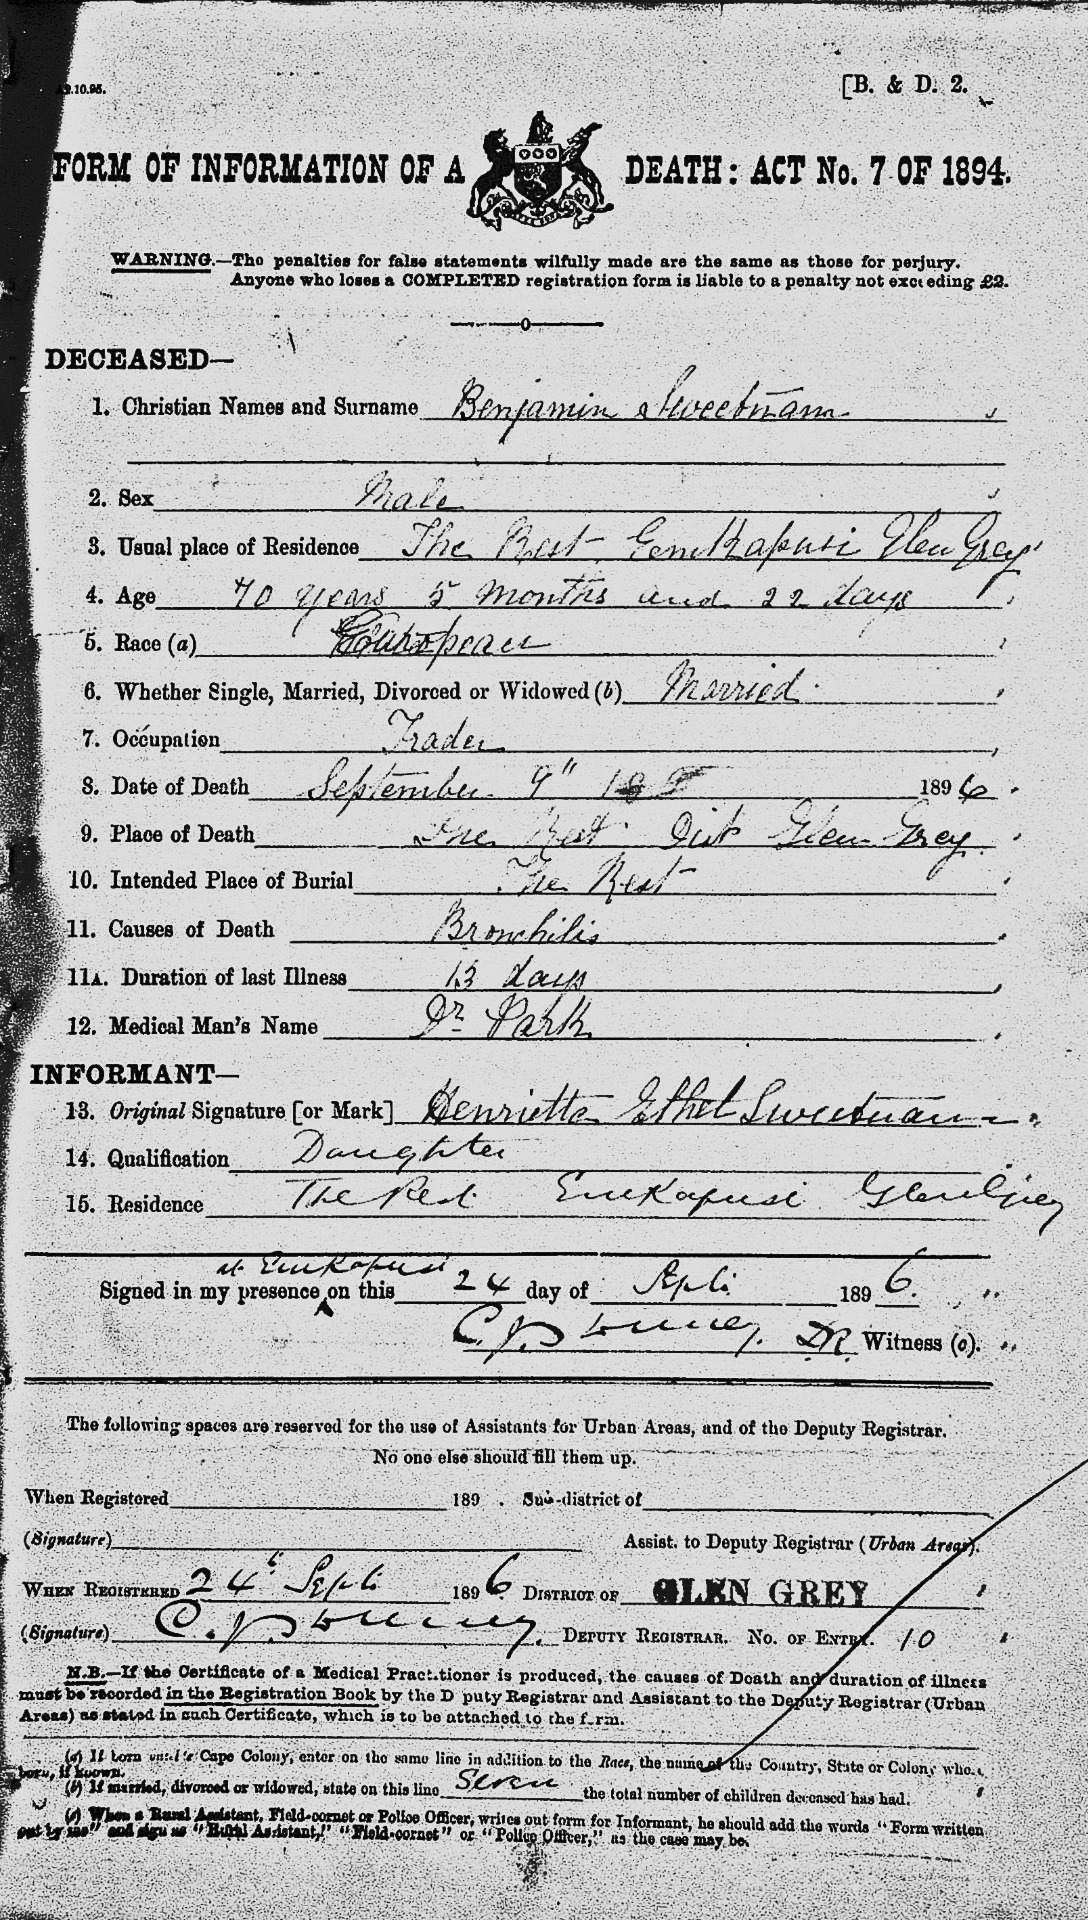 [B. & D. 2.
FORM OF INFORMATION OF A DEATH: ACT No. 7 OF 1894.
WARNING.—The penalties for false statements wilfully made are the same as those for perjury.
Anyone who loses a COMPLETED registration form is liable to a penalty not exceeding £2.
DECEASED—
1. Christian Names and Surname Benjamin Sweetnam
2. Sex Male
3. Usual place of Residence The Rest Glen Grey
4. Age 70 years 5 months and 22 days
5. Race (a) European
6. Whether Single, Married, Divorced or Widowed (b) Married
7. Occupation Trader
8. Date of Death September 9" 1896
9. Place of Death The Rest Dist Glen Grey
10. Intended Place of Burial The Rest
11. Causes of Death Bronchitis
11A. Duration of last Illness 13 days
12. Medical Man's Name Dr Park
INFORMANT—
13. Original Signature [or Mark] Henrietta Ethel Sweetnam
14. Qualification Daughter
15. Residence The Rest Emkapusi Glen Grey
at Emkapusi
Signed in my presence on this 24 day of Sept. 1896.
D.R. Witness (c).
The following spaces are reserved for the use of Assistants for Urban Areas, and of the Deputy Registrar.
No one else should fill them up.
When Registered 189 . Sub-district of
(Signature) Assist. to Deputy Registrar (Urban Areas).
WHEN REGISTERED 24 Sept. 1896 DISTRICT OF GLEN GREY
(Signature) DEPUTY REGISTRAR. NO. OF ENTRY. 10
N.B.—If the Certificate of a Medical Practitioner is produced, the causes of Death and duration of illness
must be recorded in the Registration Book by the D puty Registrar and Assistant to the Deputy Registrar (Urban
Areas) as stated in such Certificate, which is to be attached to the f rm.
(a) If born Cape Colony, enter on the same line in addition to the Race, the name of the Country, State or Colony where
born, if known.
(b) If married, divorced or widowed, state on this line Seven the total number of children deceased has had.
(c) When a Rural Assistant, Field-cornet or Police Officer, writes out form for Informant, he should add the words "Form written
out by me" and sign as "Rural Assistant," "Field-cornet" or "Police Officer," as the case may be.